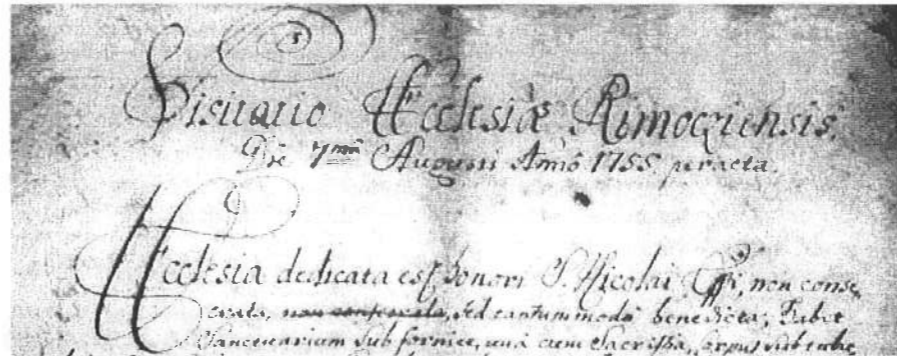 5
Visitatio Ecclesiæ Rimocziensis
Die 7ma Augusti Anno 1755 peracta.
Ecclesia dedicata est honori S. Nicolai Eppi, non conse
crata, non consecrata, sed tantummodo benedicta; Habet
Sanctuarium sub fornice, una cum Sacristia, corpus sub